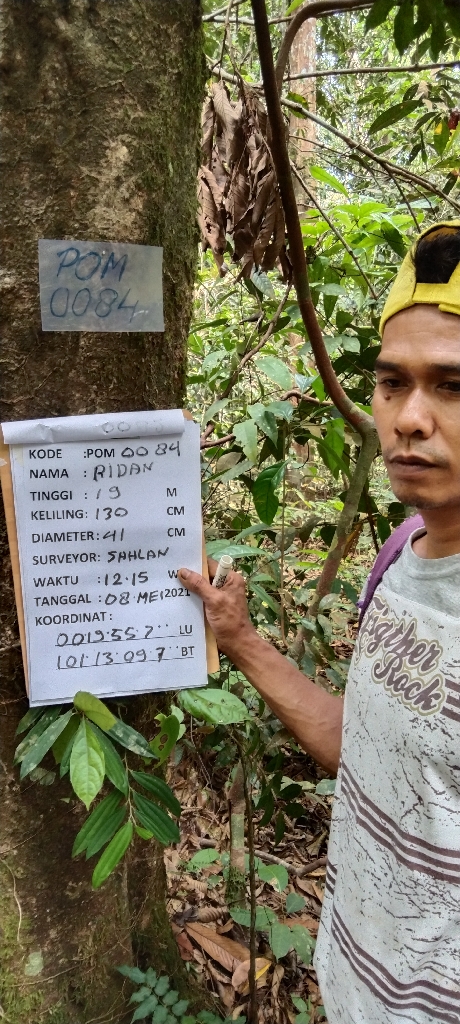 POM
0084
KODE :POM 0084
NAMA : RIDAN
TINGGI : 19 M
KELILING: 130 CM
DIAMETER: 41 CM
SURVEYOR: SAHLAN
WAKTU : 12.15 W
TANGGAL : 08 MEI 2021
KOORDINAT :
0019'55.7'' LU
101'13'09.7'' BT
Together
Rock